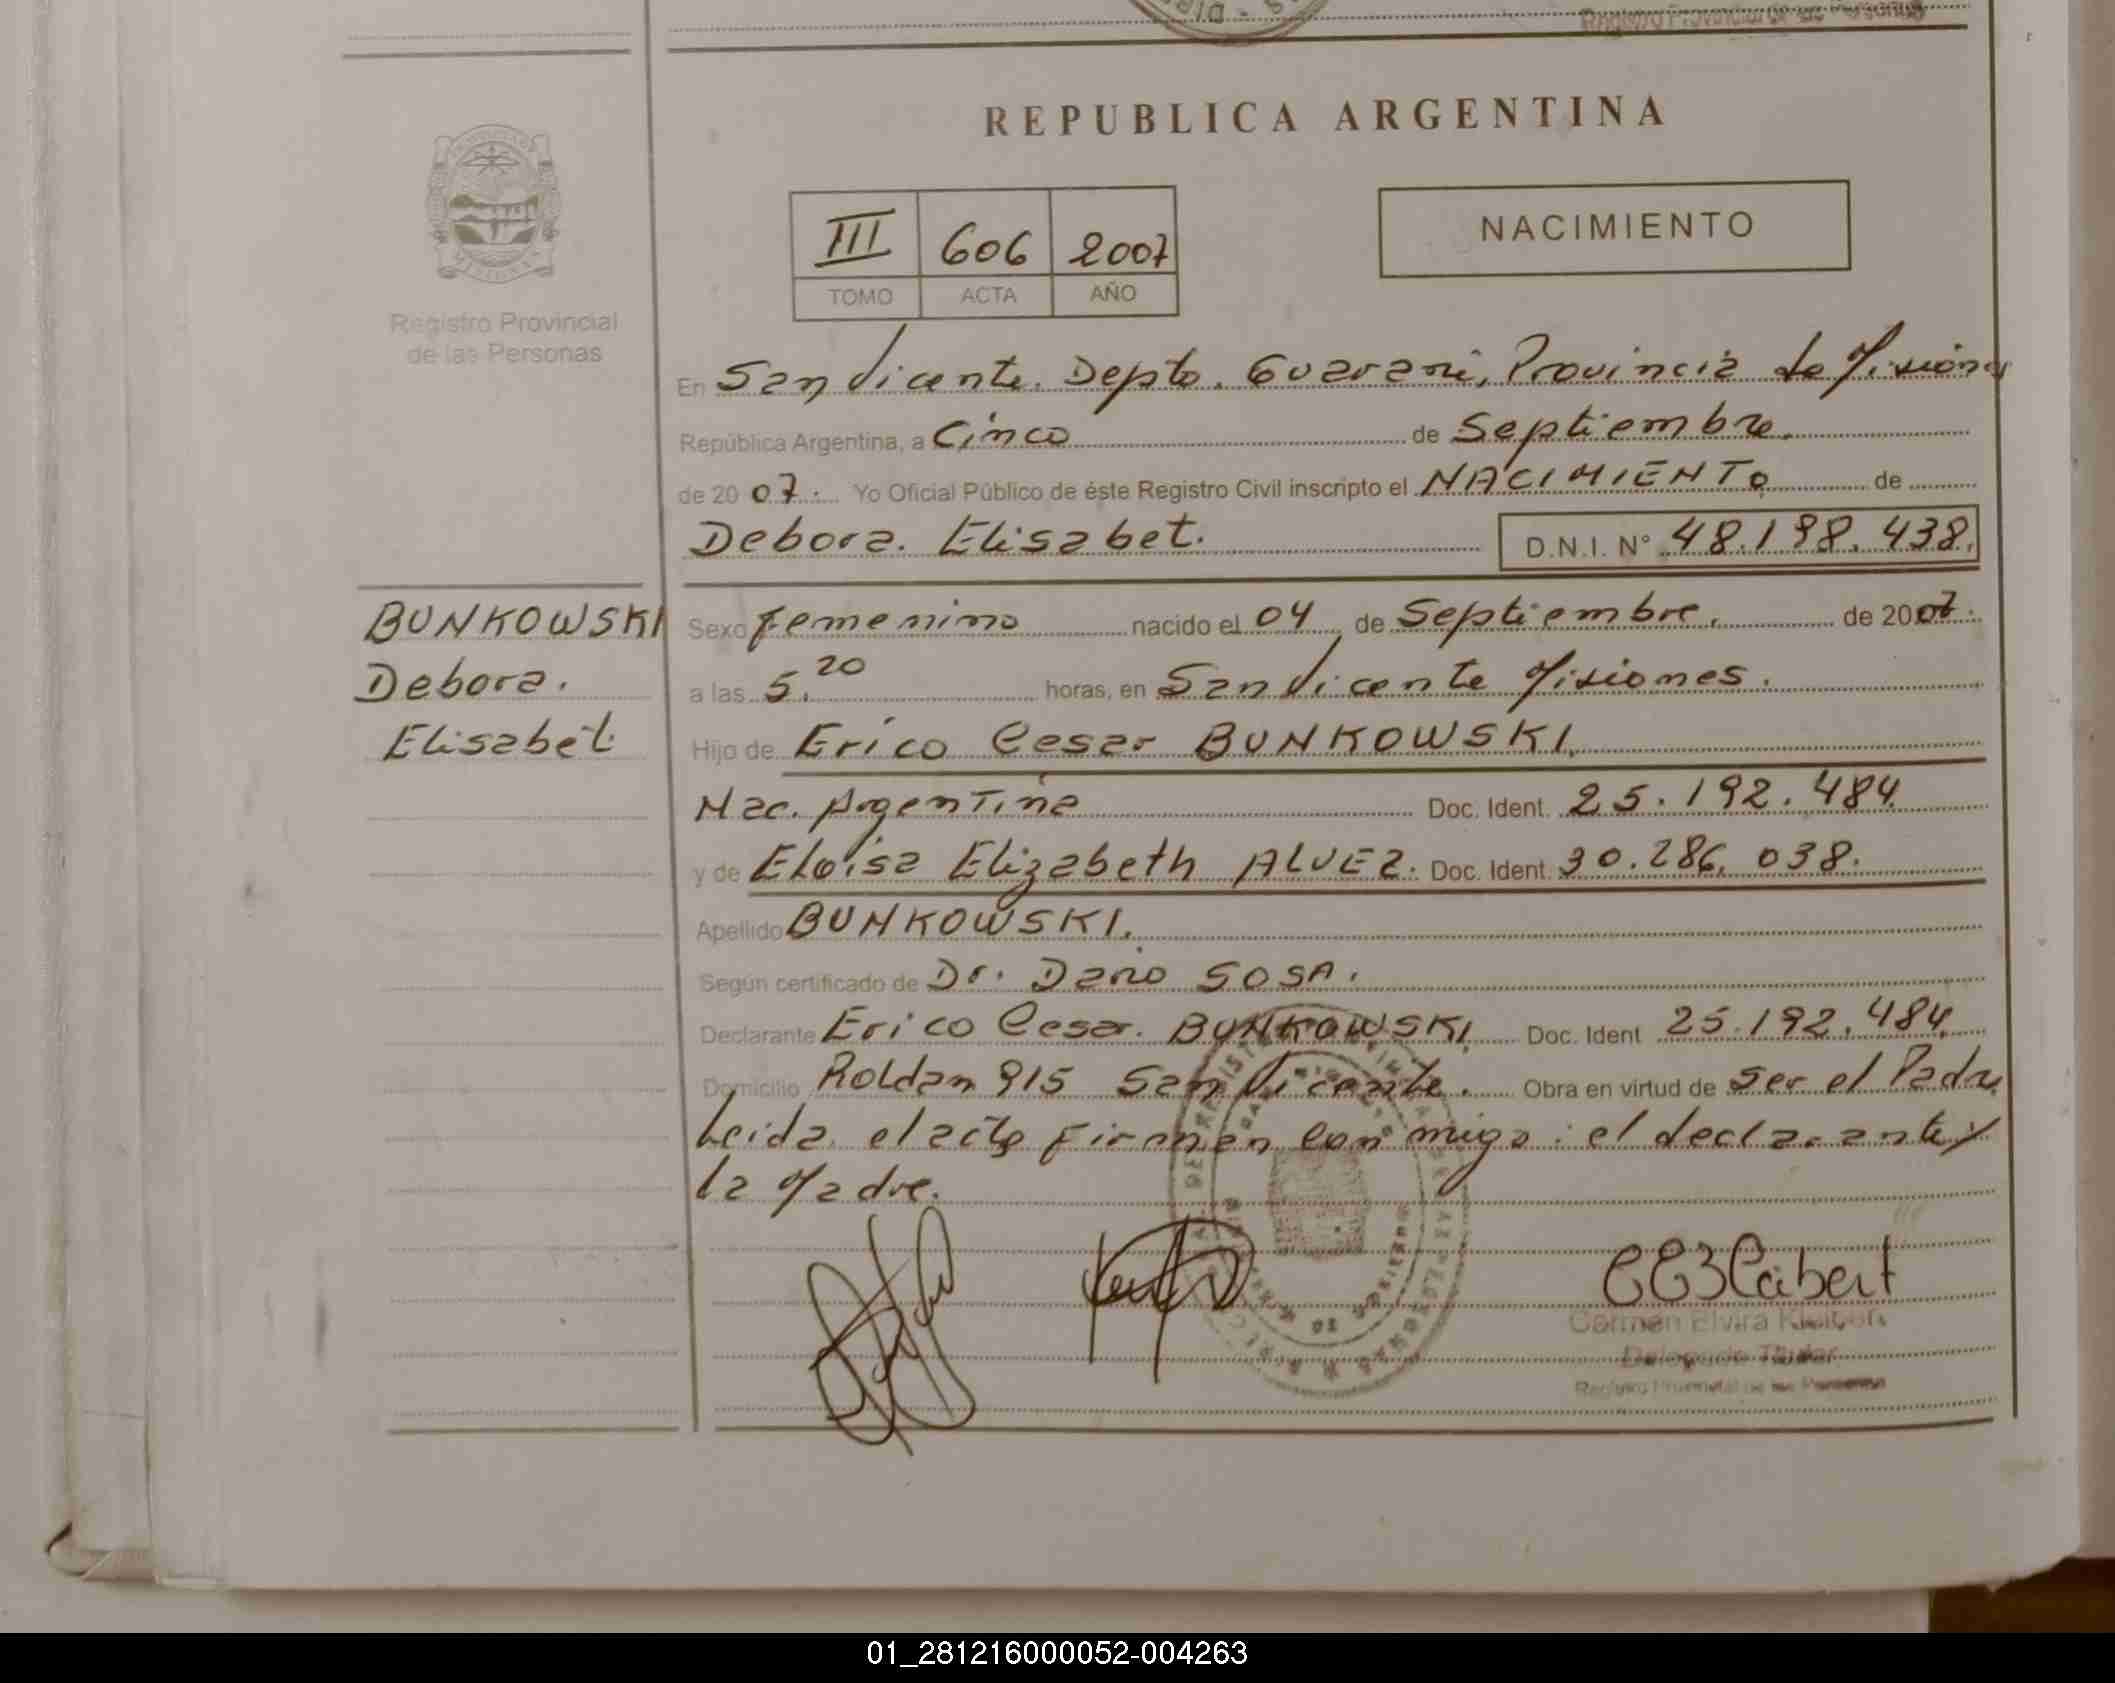 REPUBLICA ARGENTINA
NACIMIENTO
III 606 2007
TOMO ACTA AÑO
Registro Provincial
de las Personas
En San Vicente. Depto. Guarani, Provincia de Misiones
República Argentina, a Cinco de Septiembre.
de 20 07. Yo Oficial Público de éste Registro Civil inscripto el NACIMIENTO de
Debora. Elisabet. D.N.I. N° 48.198.438.
BUNKOWSKI
Debora.
Elisabet
Sexo femenino nacido el 04 de Septiembre. de 2007.
a las 5.20 horas, en San Vicente Misiones.
Hijo de Erico Cesar BUNKOWSKI.
Nac. Argentina Doc. Ident. 25.192.484
y de Eloisa Elizabeth ALVEZ. Doc. Ident. 30.286.038.
Apellido BUNKOWSKI.
Según certificado de Dr. Dario SOSA.
Declarante Erico Cesar. BUNKOWSKI. Doc. Ident 25.192.484
Domicilio Roldan 915 San Vicente. Obra en virtud de ser el Padre
Leida el acta firman conmigo: el declarante y
la Madre.
Carmen Elvira
Delegado Titular
Registro Provincial de las Personas
01_281216000052-004263